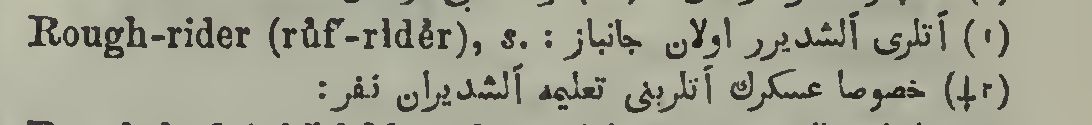 Rough-rider (rŭf´-rīdėr), s. : (١) آتلری آلشدیرر اولان جانباز
(٢⸸) خصوصا عسكرك آتلرینی تعلیمه آلشدیران نفر :